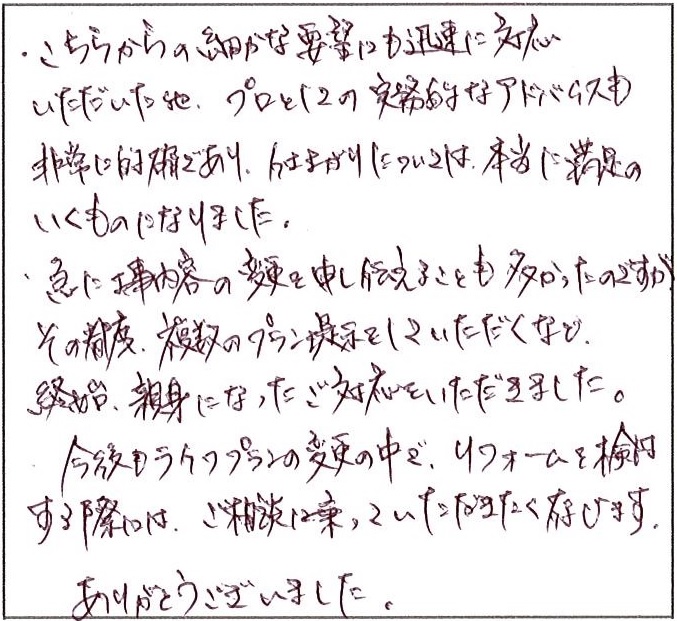 ・こちらからの細かな要望にも迅速に対応
いただいた他、プロとしての実務的なアドバイスも
非常に的確であり、仕上がりについては、本当に満足の
いくものになりました。
・急に工事内容の変更を申し伝えることも多かったのですが
その都度、複数のプラン提示をしていただくなど、
終始、親身になったご対応をいただきました。
今後もライフプランの変更の中で、リフォームを検討
する際には、ご相談に乗っていただきたく存じます。
ありがとうございました。